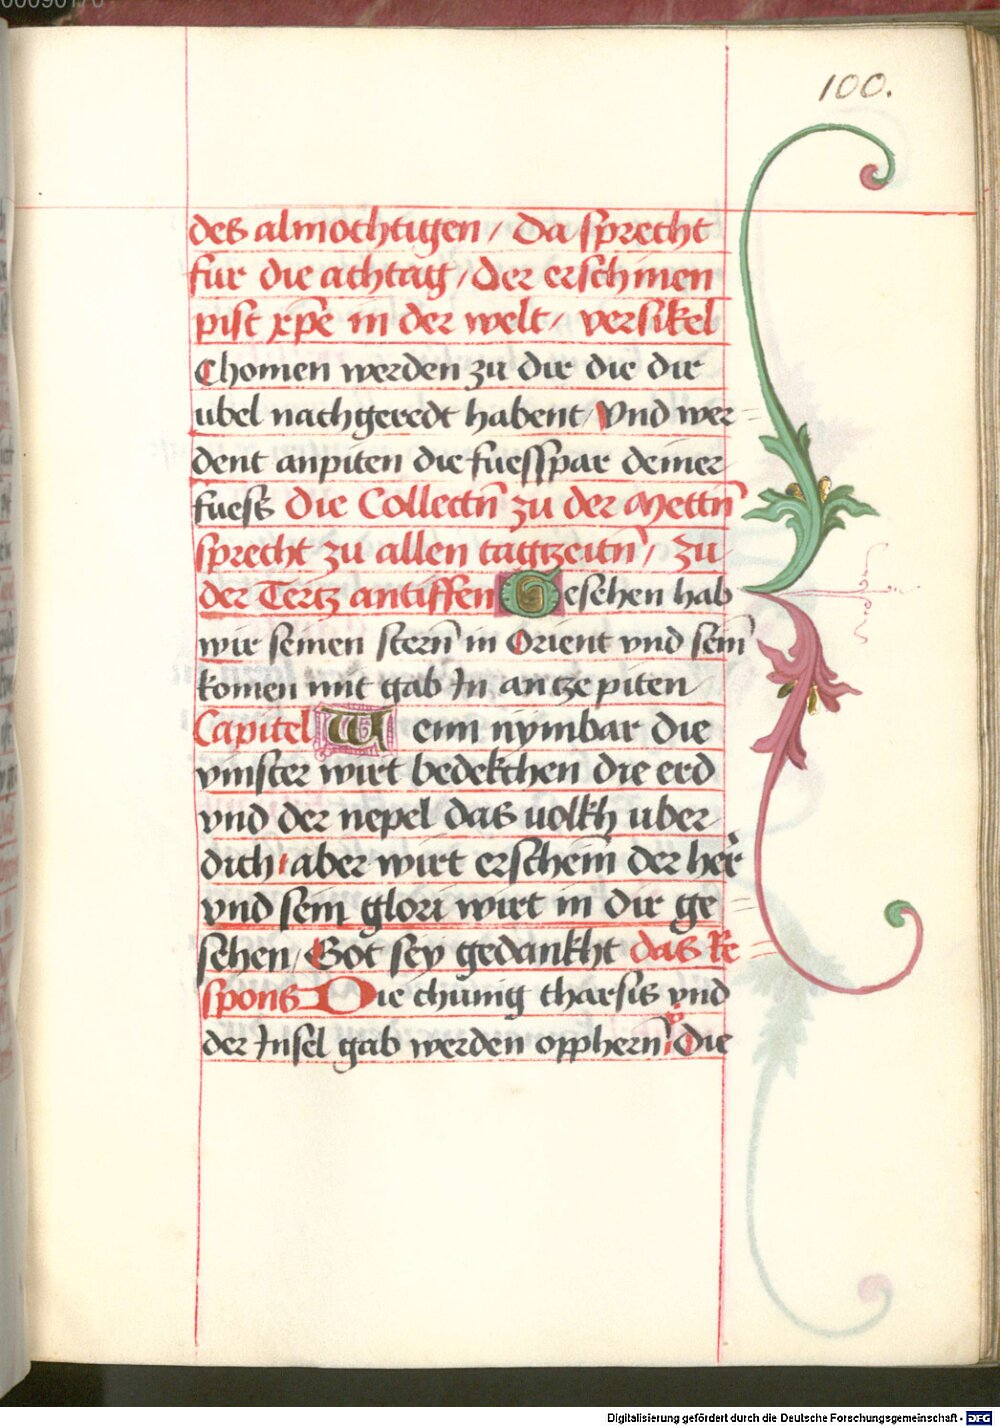 100.
des almochtigen / Da sprecht
fur die achtag / der erschinen
pist xp̄e in der welt / versikel
Chomen werden zu dir die die dir
ubel nachgeredt habent / Vnd wer=
dent anpiten die fuesspar deiner
fuess Die Collectn̄ zu der Mettn̄
sprecht zu allen tagtzeitn̄ / zu
der Tertz antiffen Gesehen hab
wir seinen stern̄ in Orient vnd sein̄
komen mit gab In an tze piten
Capitel Wenn nymbar die
vinster wirt bedekchen die erd
vnd der nepel das volkh uber
dich / aber wirt erschein̄ der her̄
vnd sein glori wirt in dir ge=
sehen / Got sey gedankht das Re=
spons Die chunig tharsis vnd
der Insel gab werden opphern̄ / Die
Digitalisierung gefördert durch die Deutsche Forschungsgemeinschaft - DFG